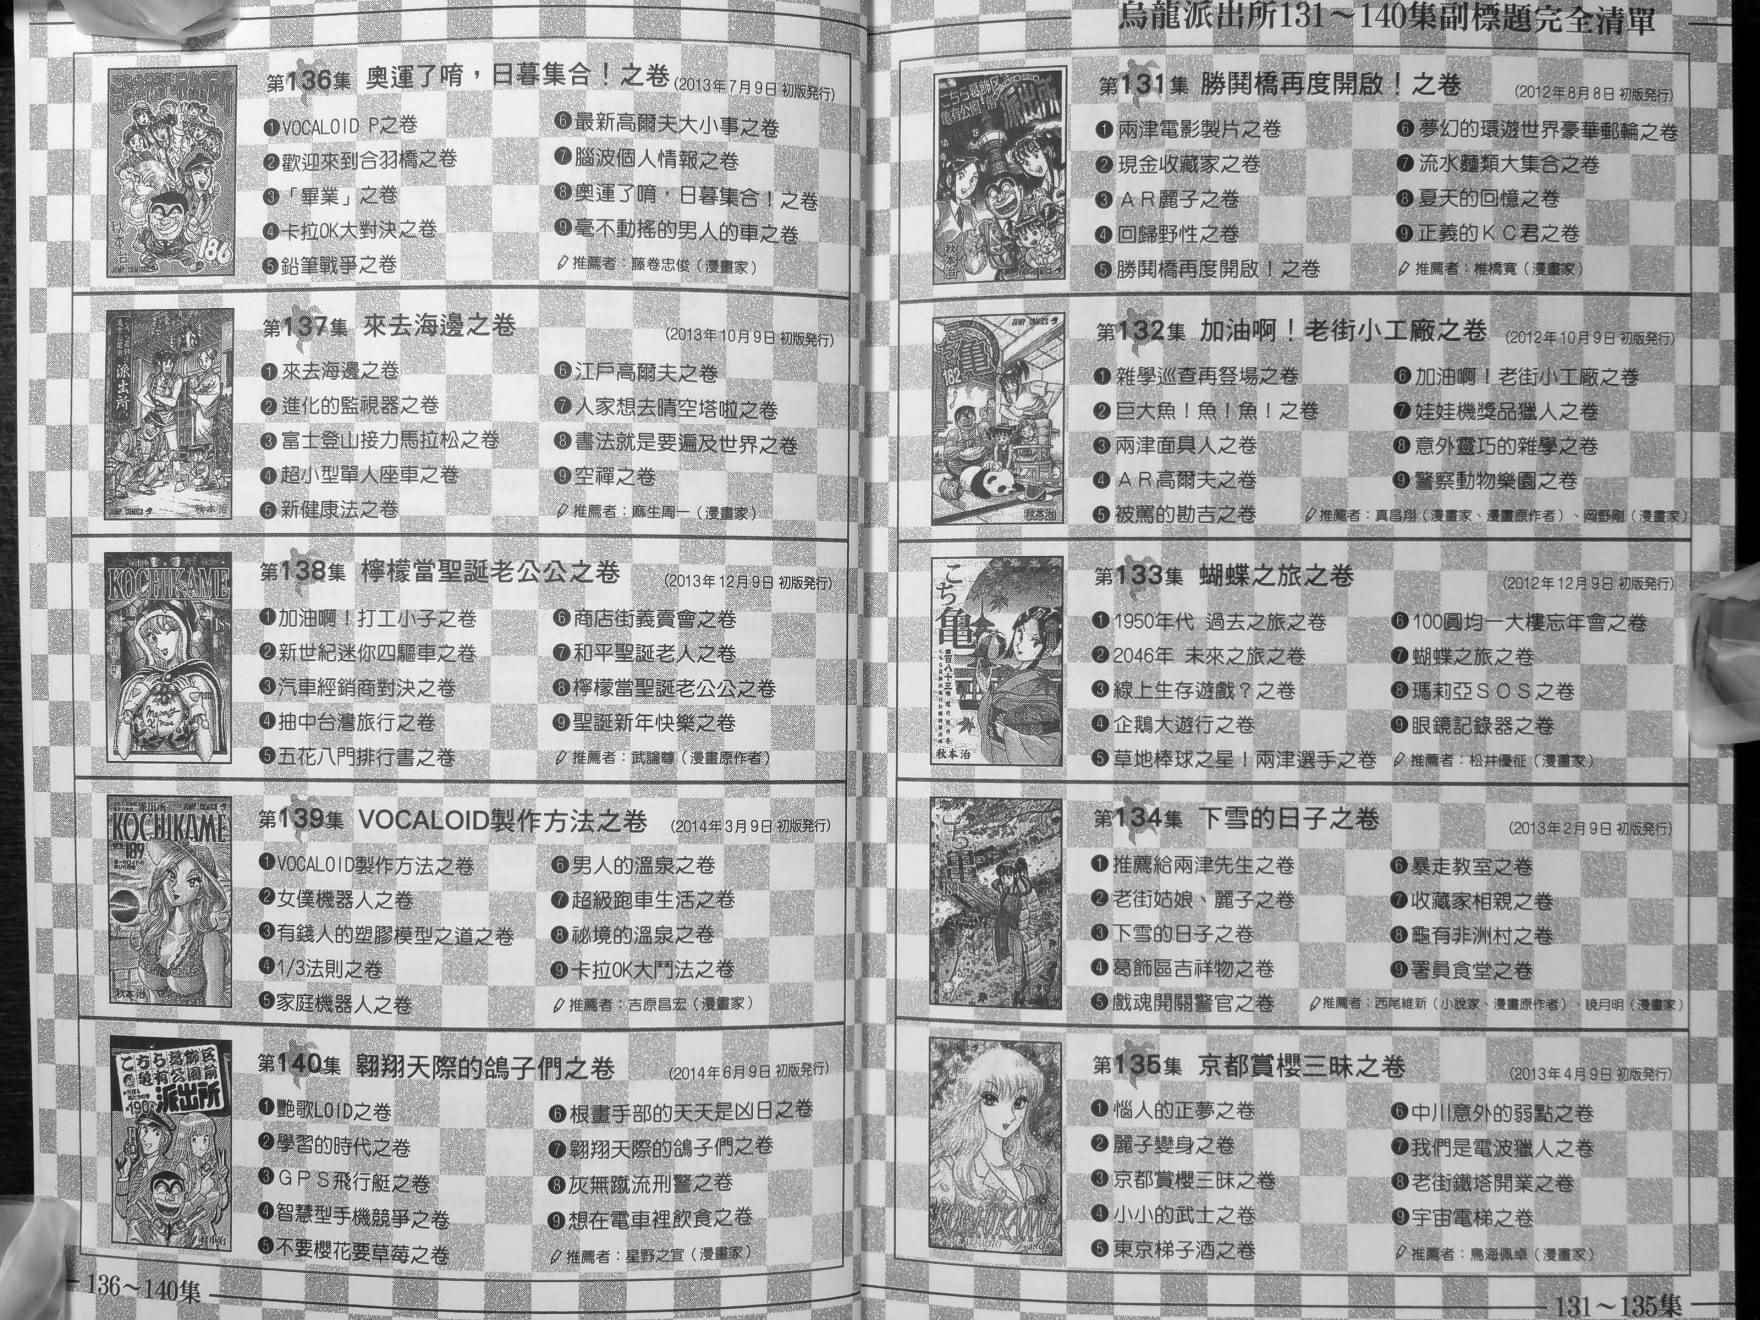 烏龍派出所131～140集副標題完全清單
第131集 勝鬨橋再度開啟！之卷 (2012年8月8日 初版発行)
❶兩津電影製片之卷
❷現金收藏家之卷
❸ＡＲ麗子之卷
❹回歸野性之卷
❺勝鬨橋再度開啟！之卷
❻夢幻的環遊世界豪華郵輪之卷
❼流水麵類大集合之卷
❽夏天的回憶之卷
❾正義的ＫＣ君之卷
推薦者：椎橋寬（漫畫家）
第132集 加油啊！老街小工廠之卷 (2012年10月9日 初版発行)
❶雜學巡查再登場之卷
❷巨大魚！魚！魚！之卷
❸兩津面具人之卷
❹ＡＲ高爾夫之卷
❺被罵的勘吉之卷
❻加油啊！老街小工廠之卷
❼娃娃機獎品獵人之卷
❽意外靈巧的雜學之卷
❾警察動物樂園之卷
推薦者：真昌翔（漫畫家、漫畫原作者）、岡野剛（漫畫家）
第133集 蝴蝶之旅之卷 (2012年12月9日 初版発行)
❶1950年代 過去之旅之卷
❷2046年 未來之旅之卷
❸線上生存遊戲？之卷
❹企鵝大遊行之卷
❺草地棒球之星！兩津選手之卷
❻100圓均一大樓忘年會之卷
❼蝴蝶之旅之卷
❽瑪莉亞ＳＯＳ之卷
❾眼鏡記錄器之卷
推薦者：松井優征（漫畫家）
第134集 下雪的日子之卷 (2013年2月9日 初版発行)
❶推薦給兩津先生之卷
❷老街姑娘、麗子之卷
❸下雪的日子之卷
❹葛飾區吉祥物之卷
❺戲魂開關警官之卷
❻暴走教室之卷
❼收藏家相親之卷
❽龜有非洲村之卷
❾署員食堂之卷
推薦者：西尾維新（小說家、漫畫原作者）、曉月明（漫畫家）
第135集 京都賞櫻三昧之卷 (2013年4月9日 初版発行)
❶惱人的正夢之卷
❷麗子變身之卷
❸京都賞櫻三昧之卷
❹小小的武士之卷
❺東京梯子酒之卷
❻中川意外的弱點之卷
❼我們是電波獵人之卷
❽老街鐵塔開業之卷
❾宇宙電梯之卷
推薦者：鳥海佩卓（漫畫家）
131～135集
第136集 奧運了唷，日暮集合！之卷 (2013年7月9日 初版発行)
❶VOCALOID P之卷
❷歡迎來到合羽橋之卷
❸「畢業」之卷
❹卡拉OK大對決之卷
❺鉛筆戰爭之卷
❻最新高爾夫大小事之卷
❼腦波個人情報之卷
❽奧運了唷，日暮集合！之卷
❾毫不動搖的男人的車之卷
推薦者：藤卷忠俊（漫畫家）
第137集 來去海邊之卷 (2013年10月9日 初版発行)
❶來去海邊之卷
❷進化的監視器之卷
❸富士登山接力馬拉松之卷
❹超小型單人座車之卷
❺新健康法之卷
❻江戶高爾夫之卷
❼人家想去晴空塔啦之卷
❽書法就是要遍及世界之卷
❾空禪之卷
推薦者：麻生周一（漫畫家）
第138集 檸檬當聖誕老公公之卷 (2013年12月9日 初版発行)
❶加油啊！打工小子之卷
❷新世紀迷你四驅車之卷
❸汽車經銷商對決之卷
❹抽中台灣旅行之卷
❺五花八門排行書之卷
❻商店街義賣會之卷
❼和平聖誕老人之卷
❽檸檬當聖誕老公公之卷
❾聖誕新年快樂之卷
推薦者：武論尊（漫畫原作者）
第139集 VOCALOID製作方法之卷 (2014年3月9日 初版発行)
❶VOCALOID製作方法之卷
❷女僕機器人之卷
❸有錢人的塑膠模型之道之卷
❹1/3法則之卷
❺家庭機器人之卷
❻男人的溫泉之卷
❼超級跑車生活之卷
❽祕境的溫泉之卷
❾卡拉OK大鬥法之卷
推薦者：吉原昌宏（漫畫家）
第140集 翱翔天際的鴿子們之卷 (2014年6月9日 初版発行)
❶艷歌LOID之卷
❷學習的時代之卷
❸ＧＰＳ飛行艇之卷
❹智慧型手機競爭之卷
❺不要櫻花要草莓之卷
❻根畫手部的天天是凶日之卷
❼翱翔天際的鴿子們之卷
❽灰無蹴流刑警之卷
❾想在電車裡飲食之卷
推薦者：星野之宣（漫畫家）
136～140集